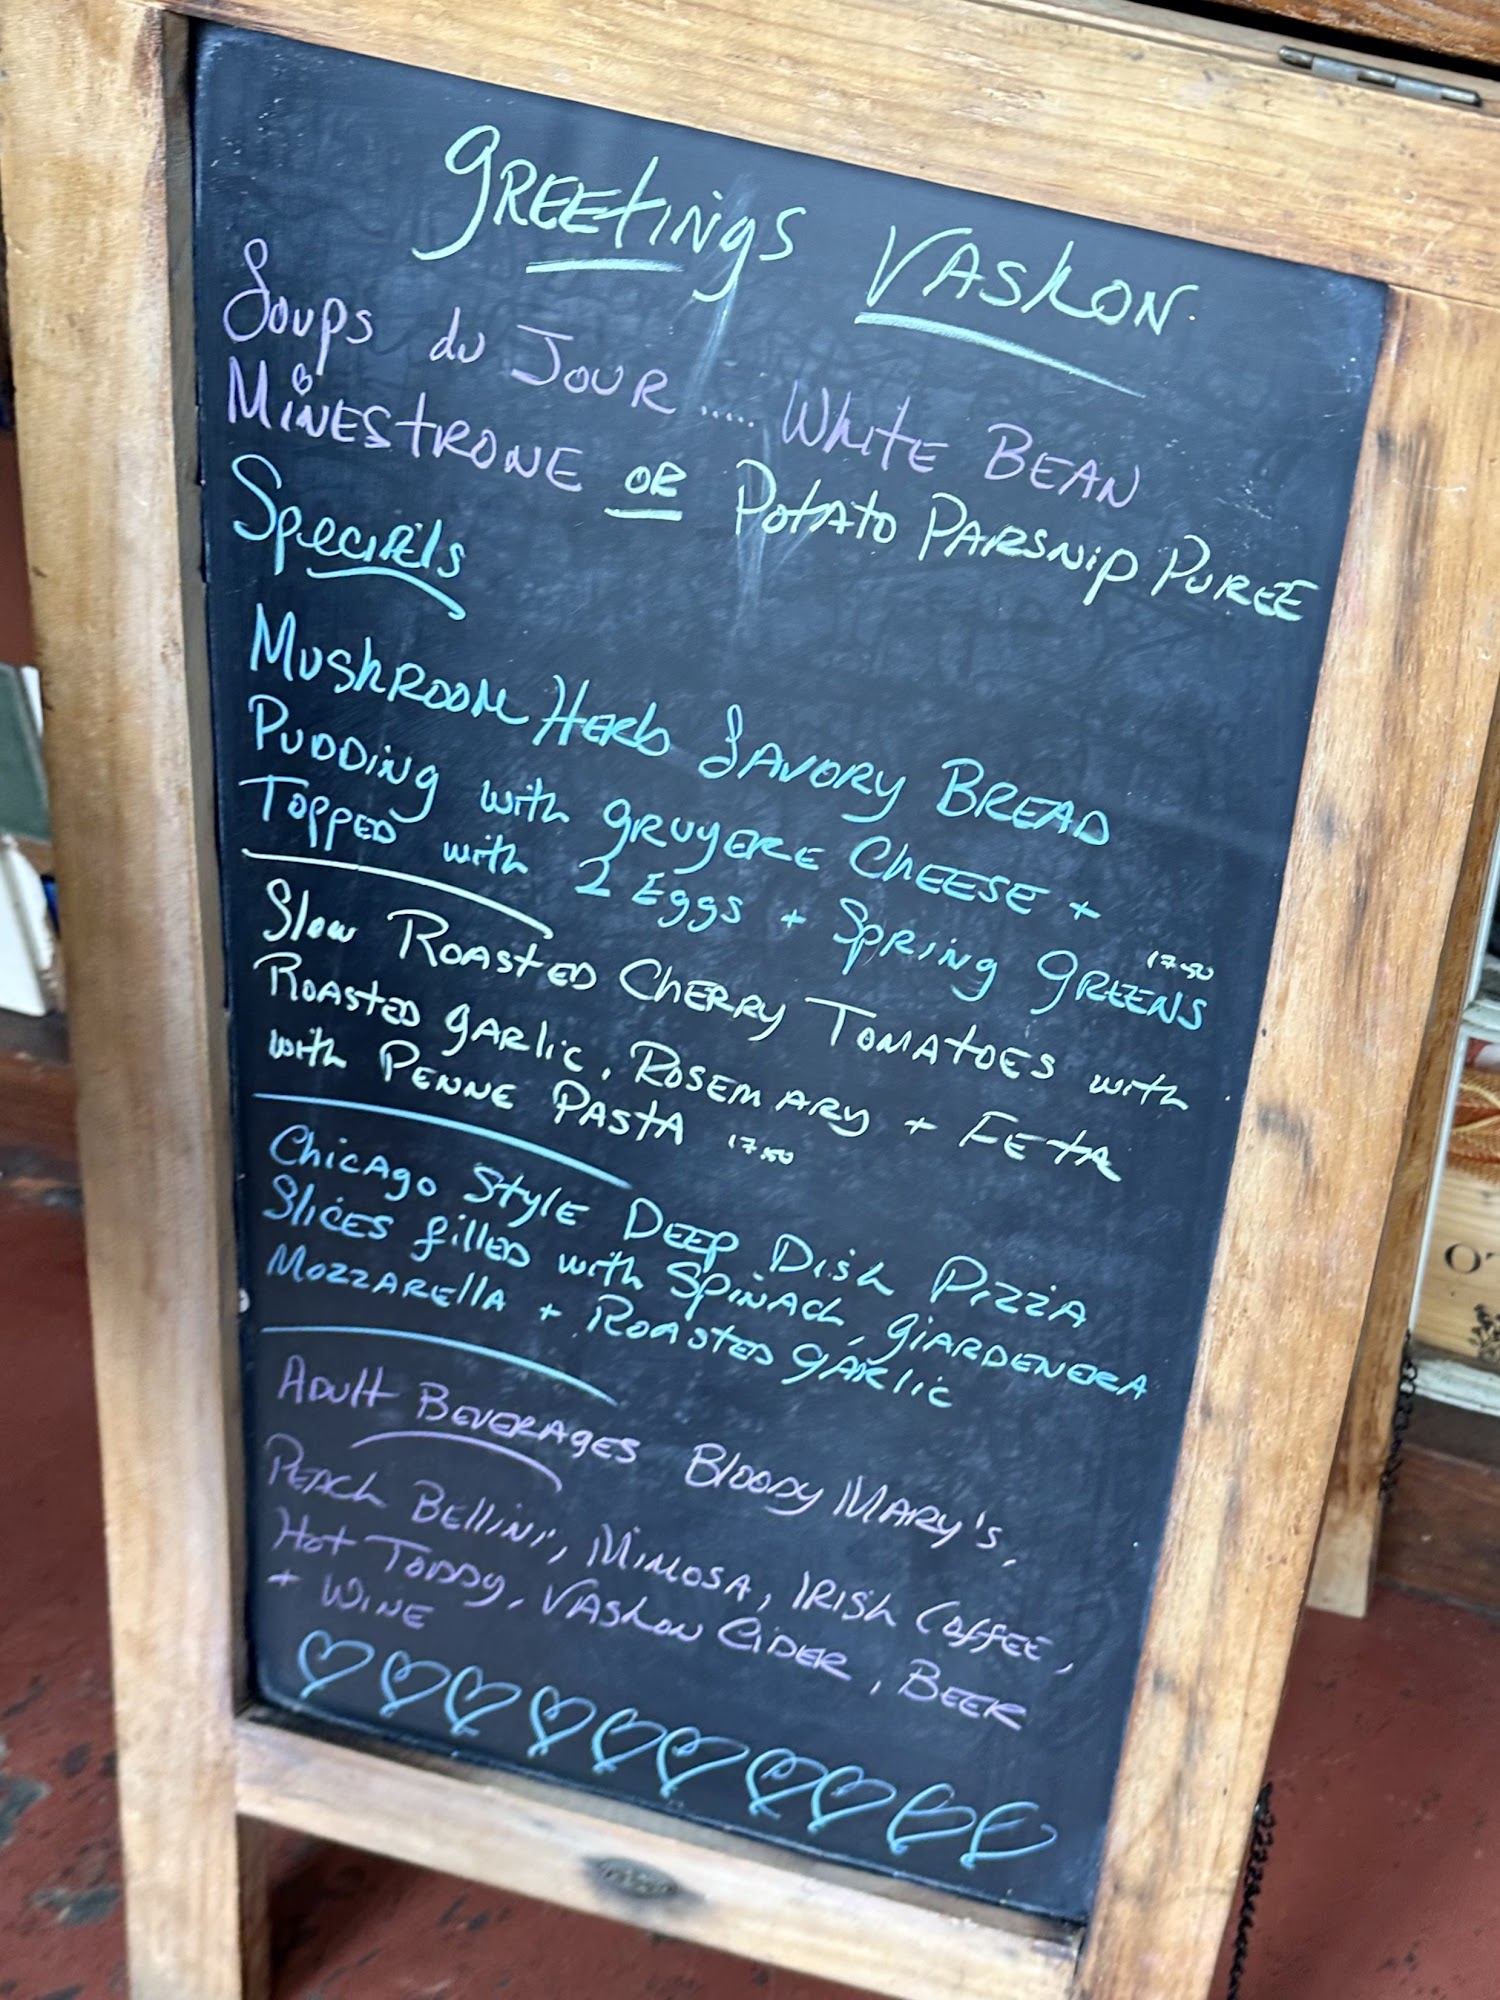 Greetings Vashon
Soups du Jour..... White Bean
Minestrone or Potato Parsnip Puree
Specials
Mushroom Herb Savory Bread
Pudding with Gruyere Cheese +
Topped with 2 Eggs + Spring Greens 17.50
Slow Roasted Cherry Tomatoes with
Roasted Garlic, Rosemary + Feta
with Penne Pasta 17.50
Chicago Style Deep Dish Pizza
Slices filled with Spinach, Giardenera
Mozzarella + Roasted Garlic
Adult Beverages Bloody Mary's,
Peach Bellini, Mimosa, Irish Coffee,
Hot Toddy, Vashon Cider, Beer
+ Wine